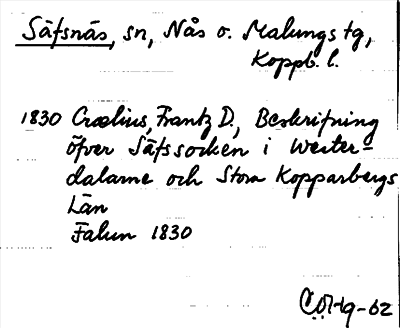 Säfsnäs, sn, Nås o. Malungs tg,
Koppb. l.
1830 Crælius, Frantz D., Beskrifning
öfver Säfssocken i Wester-
dalarne och Stora Kopparbergs
Län
Falun 1830